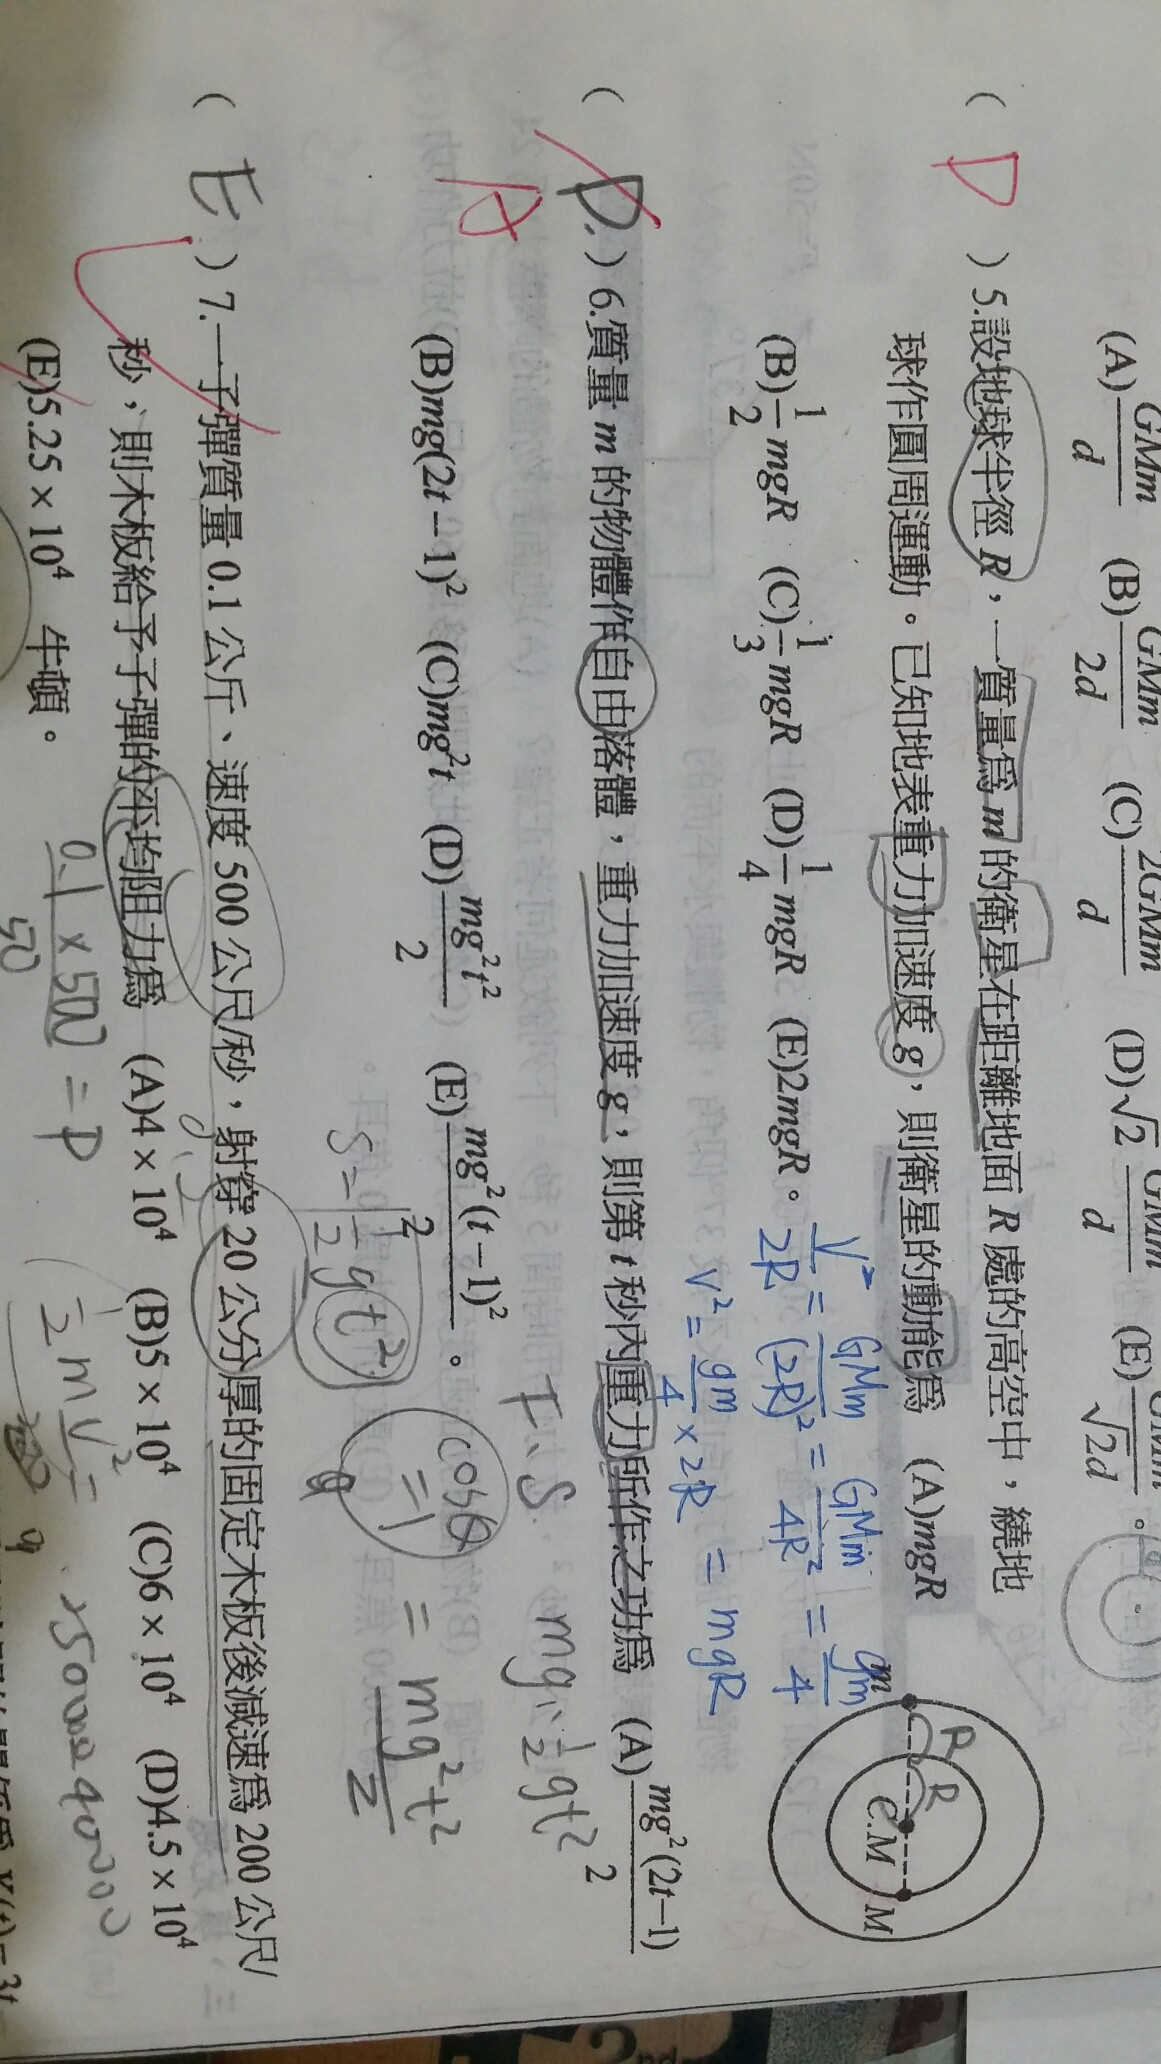 (A) GMm/d (B) GMm/2d (C) 2GMm/d (D) √2 GMm/d (E) GMm/√2d 。
( D ) 5.設地球半徑 R，一質量爲 m 的衛星在距離地面 R 處的高空中，繞地
球作圓周運動。已知地表重力加速度 g，則衛星的動能爲 (A)mgR
(B) 1/2 mgR (C) 1/3 mgR (D) 1/4 mgR (E)2mgR。
V²/2R = GMm/(2R)² = GMm/4R² = gm/4
V² = gm/4 × 2R = mgR
m
R
R
C.M
M
( D. ) 6.質量 m 的物體作自由落體，重力加速度 g，則第 t 秒內重力所作之功爲 (A) mg²(2t−1)/2
A
(B)mg(2t−1)² (C)mg²t (D) mg²t²/2 (E) mg²(t−1)²/2 。
F、S
mg、1/2 gt²
S = 1/2 gt²
cosθ
=1
= mg²t²/2
( E ) 7.一子彈質量 0.1 公斤、速度 500 公尺/秒，射穿 20 公分厚的固定木板後減速爲 200 公尺/
秒，則木板給予子彈的平均阻力爲 (A)4×10⁴ (B)5×10⁴ (C)6×10⁴ (D)4.5×10⁴
(E)5.25×10⁴ 牛頓。
0.1 × 500 = P
1/2 mv² =